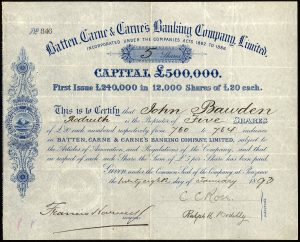 No 846
Batten, Carne & Carne's Banking Company, Limited.
INCORPORATED UNDER THE COMPANIES ACTS 1862 TO 1886.
5
CAPITAL £500,000.
First Issue £240,000 in 12,000 Shares of £20 each.
This is to Certify that John Bawden
of Redruth is the Proprietor of Five SHARES
of £20 each numbered respectively from 760 to 764 inclusive
in BATTEN, CARNE & CARNE'S BANKING COMPANY, LIMITED, subject to
the Articles of Association and Regulations of the Company, and that
in respect of each such Share the Sum of £ per Share has been paid.
Given under the Common Seal of the Company at Penzance
the twenty eighth day of January 1893
C. C. Ross